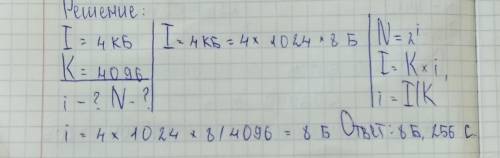 Решение:
I = 4 КБ
K = 4096
i - ? N - ?
I = 4КБ = 4 × 1024 × 8 Б
N = 2^i
I = K × i,
i = I/K
i = 4 × 1024 × 8 / 4096 = 8 Б Ответ: 8 Б, 256 с.